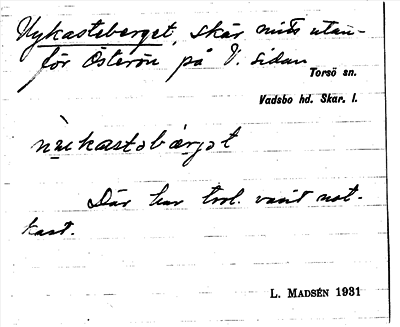 Nykastsberget, skär mitt utan-
för Österön på V. sidan
Torsö sn.
Vadsbo hd. Skar. l.
Där har trol. varit not-
kast.
L. MADSÉN 1931